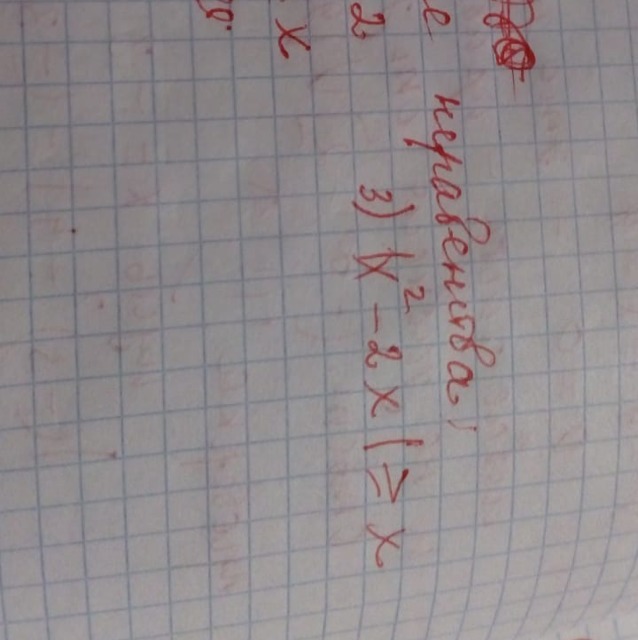 неравенства
3) |x² - 2x| ≥ x